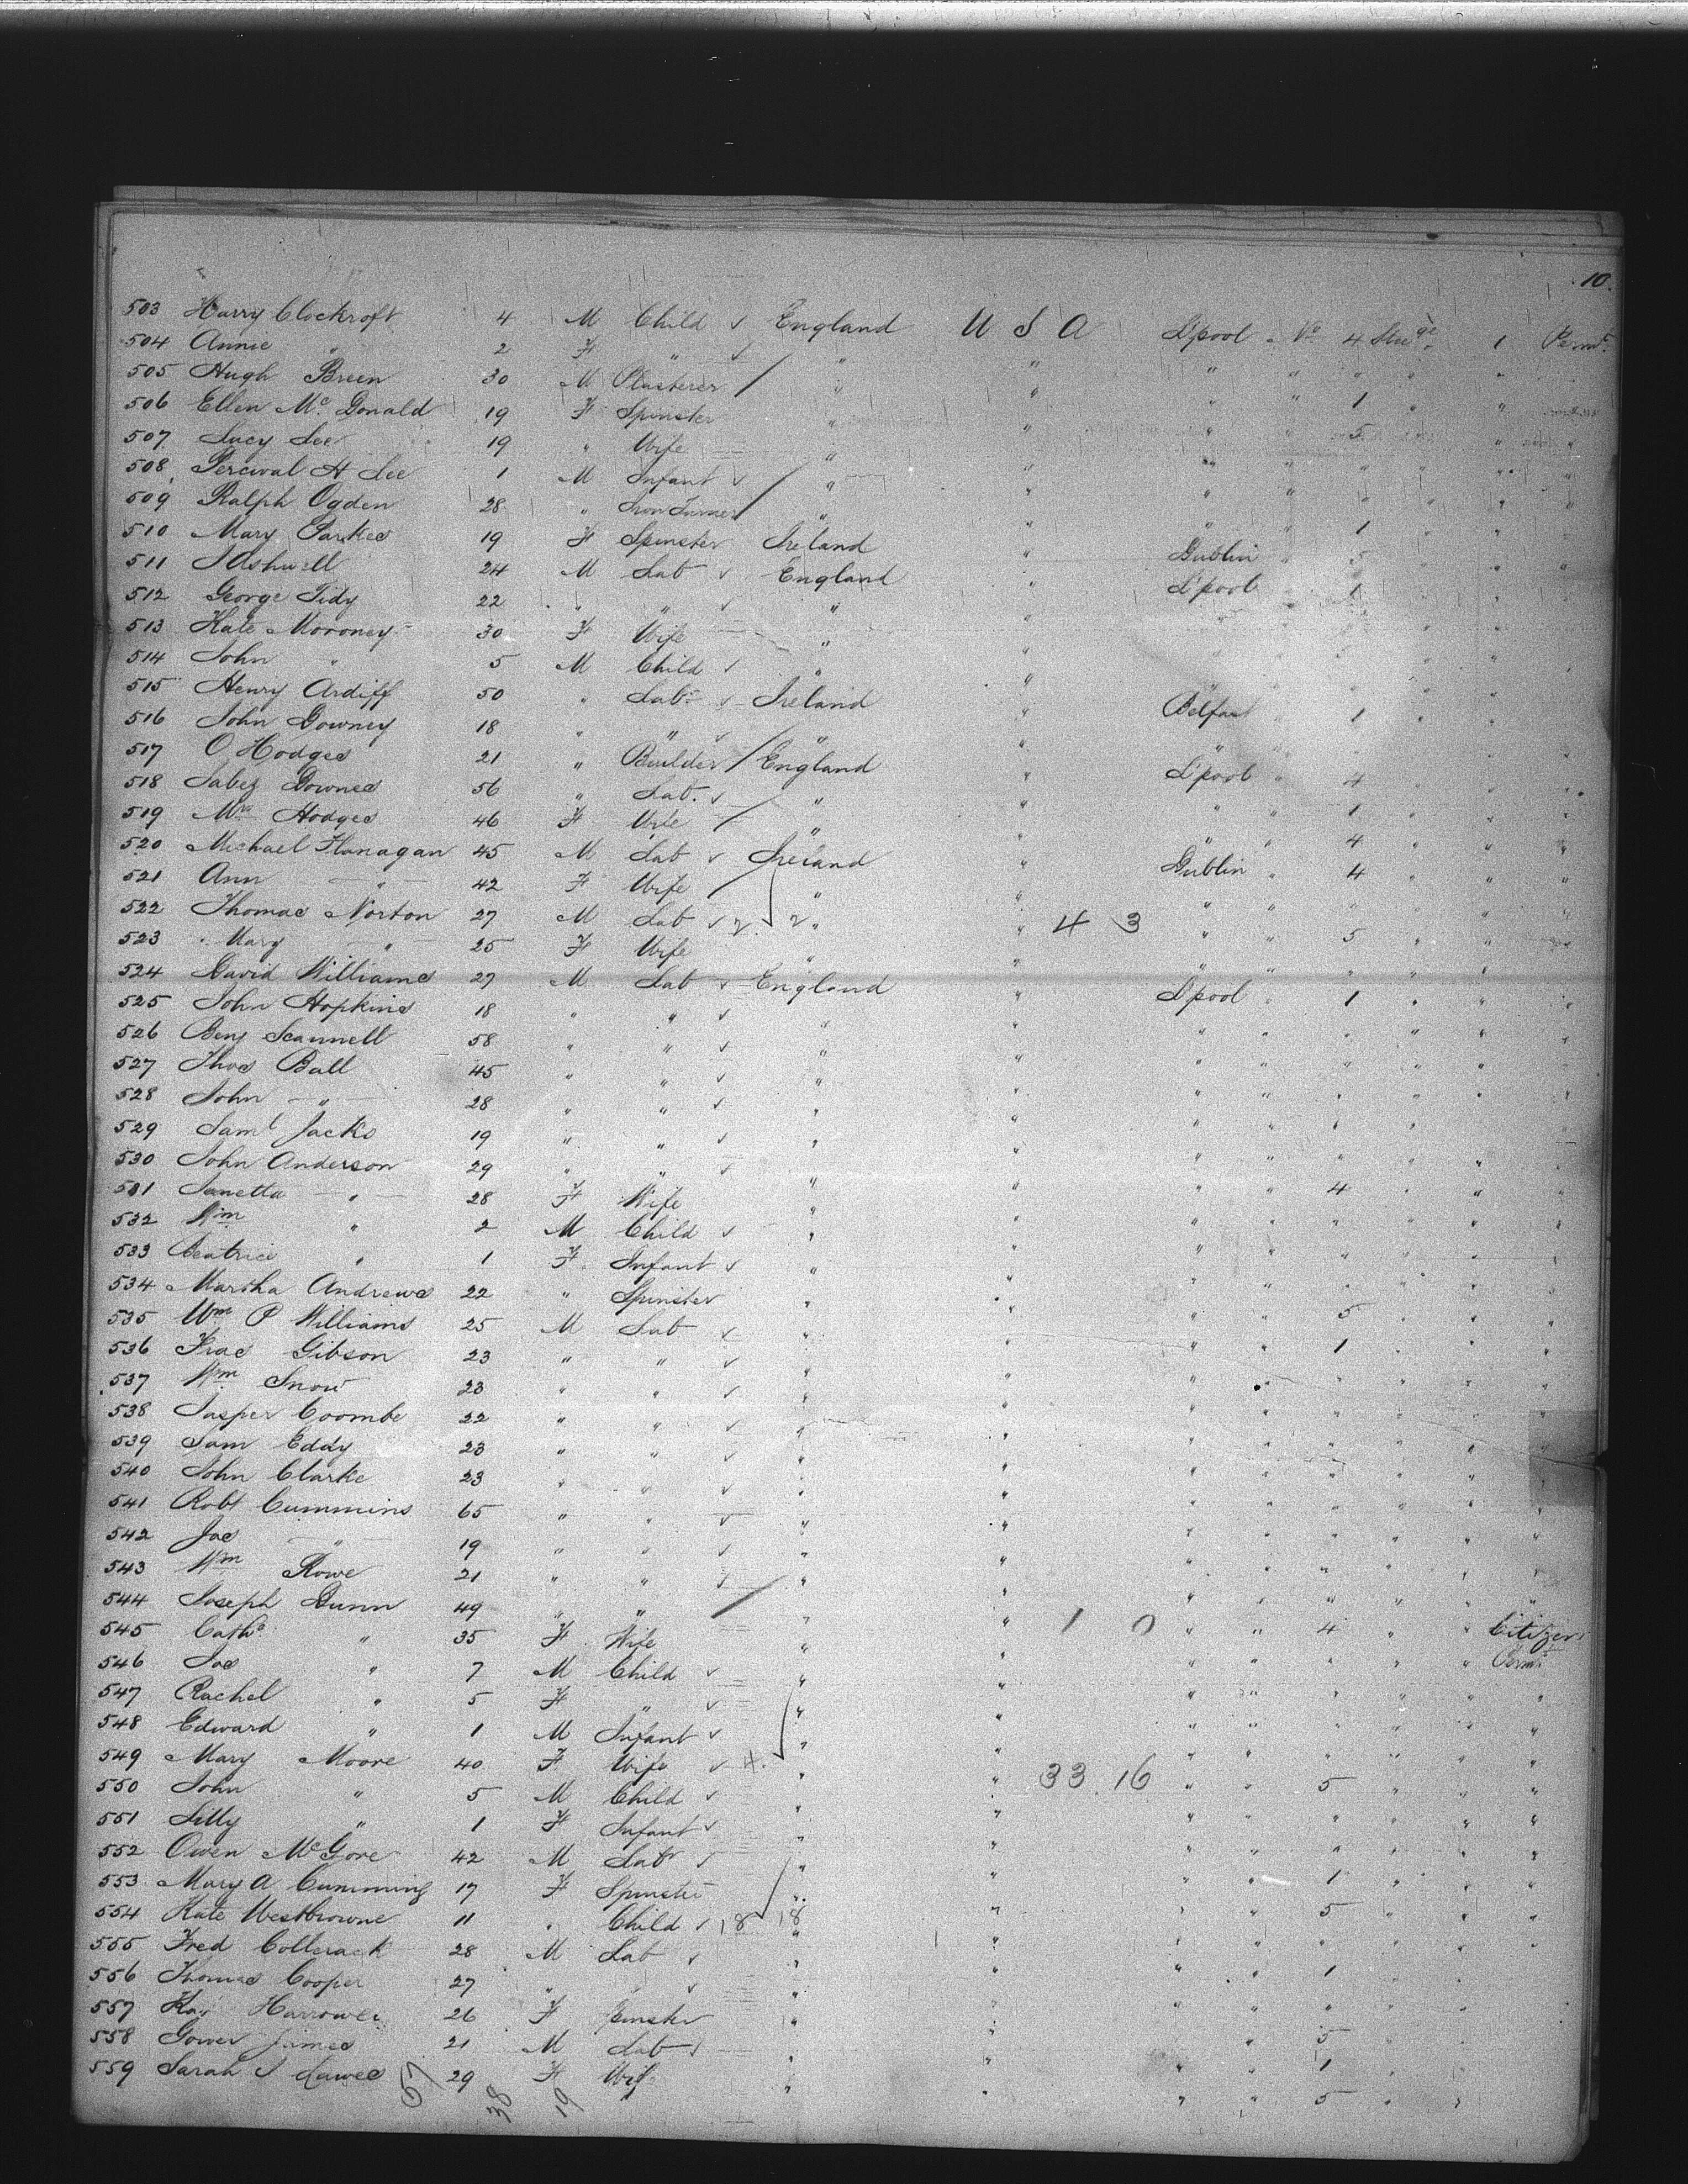 10.
503 Harry Clockroft 4 M Child ✓ England U S A L'pool No 4 Steege 1 Permt
504 Annie " 2 F " ✓ " " " " " " "
505 Hugh Breen 30 M Plasterer / " " " " 1 " "
506 Ellen Mc Donald 19 F Spinster " " " " 5 " "
507 Lucy Lee 19 " Wife " " " " " " " "
508 Percival H Lee 1 M Infant ✓ " " " " " " " "
509 Ralph Ogden 28 " Iron Turner / " " " " 1 " "
510 Mary Parkes 19 F Spinster Ireland " Dublin " 5 " " "
511 J Ashwell 24 M Lab ✓ England " L'pool 1 " " "
512 George Tidy 22 " " ✓ " "
513 Kate Moroney 30 F Wife " " 5 " "
514 John " 5 M Child ✓ " " " "
515 Henry Ardiff 50 " Labr ✓ Ireland " Belfast " 1 " "
516 John Downey 18 " " ✓ " " " "
517 O Hodges 21 " Builder / England " L'pool " 4 " "
518 Jabez Downes 56 " Lab. ✓ " " " " 1 " " "
519 Mrs Hodges 46 F Wife / " " " " 4 " " "
520 Michael Flanagan 45 M Lab ✓ Ireland " Dublin " 4 " " "
521 Ann " 42 F Wife / " " " " " " " "
522 Thomas Norton 27 M Lab ✓ 2. 2 " " 4 3 " " 5 " " "
523 Mary " 25 F Wife " " " " " " " "
524 David Williams 27 M Lab ✓ England " L'pool " 1 " " "
525 John Hopkins 18 " " ✓ " " " " " " " "
526 Benj Scannell 58 " " ✓ " " " " " " " "
527 Thos Ball 45 " " ✓ " " " " " " " "
528 John " 28 " " ✓ " " " " " " " "
529 Saml Jacks 19 " " ✓ " " " " " " " "
530 John Anderson 29 " " ✓ " " " " 4 " " "
531 Janetta " 28 F Wife " " " " " " " "
532 Wm " 2 M Child ✓ " " " " " " " "
533 Beatrice " 1 F Infant ✓ " " " " " " " "
534 Martha Andrews 22 " Spinster " " " " 5 " " "
535 Wm P Williams 25 M Lab ✓ " " " " 1 " " "
536 Gibson 23 " " ✓ " " " " " " " "
537 Wm Snow 23 " " ✓ " " " " " " " "
538 Jasper Coombe 22 " " ✓ " " " " " " " "
539 Sam Eddy 23 " " ✓ " " " " " " " "
540 John Clarke 23 " " ✓ " " " " " " " "
541 Robt Cummins 65 " " ✓ " " " " " " " "
542 Jas " 19 " " ✓ " " " " " " " "
543 Wm Rowe 21 " " ✓ " " " " " " " "
544 Joseph Dunn 49 " " / " " 1 0 " " 4 " " Citizen
545 Cathe " 35 F Wife " " " " " " " Permt
546 Jos 7 M Child ✓ " " " " " " " "
547 Rachel " 5 F " ✓ " " " " " " " "
548 Edward " 1 M Infant ✓ " " " " " " " "
549 Mary Moore 40 F Wife ✓ 4. " " 33 . 16 " " 5 " " "
550 John " 5 M Child ✓ " " " " " " " "
551 Lilly " 1 F Infant ✓ " " " " " " " "
552 Owen McGore 42 M Labr ✓ " " " " 1 " " "
553 Mary A Cumming 17 F Spinster " " " " 5 " " "
554 Kate Westbrowne 11 " Child ✓ 18 18 " " " " " " "
555 Fred 28 M Lab ✓ " " " " 1 " "
556 Thomas Cooper 27 " " ✓ " " " " " " "
557 26 F " " " 5 " "
558 Gower James 21 M Lab ✓ " " " " 1 " "
559 Sarah J 29 F Wife " " " " 5 " "
57 38 19